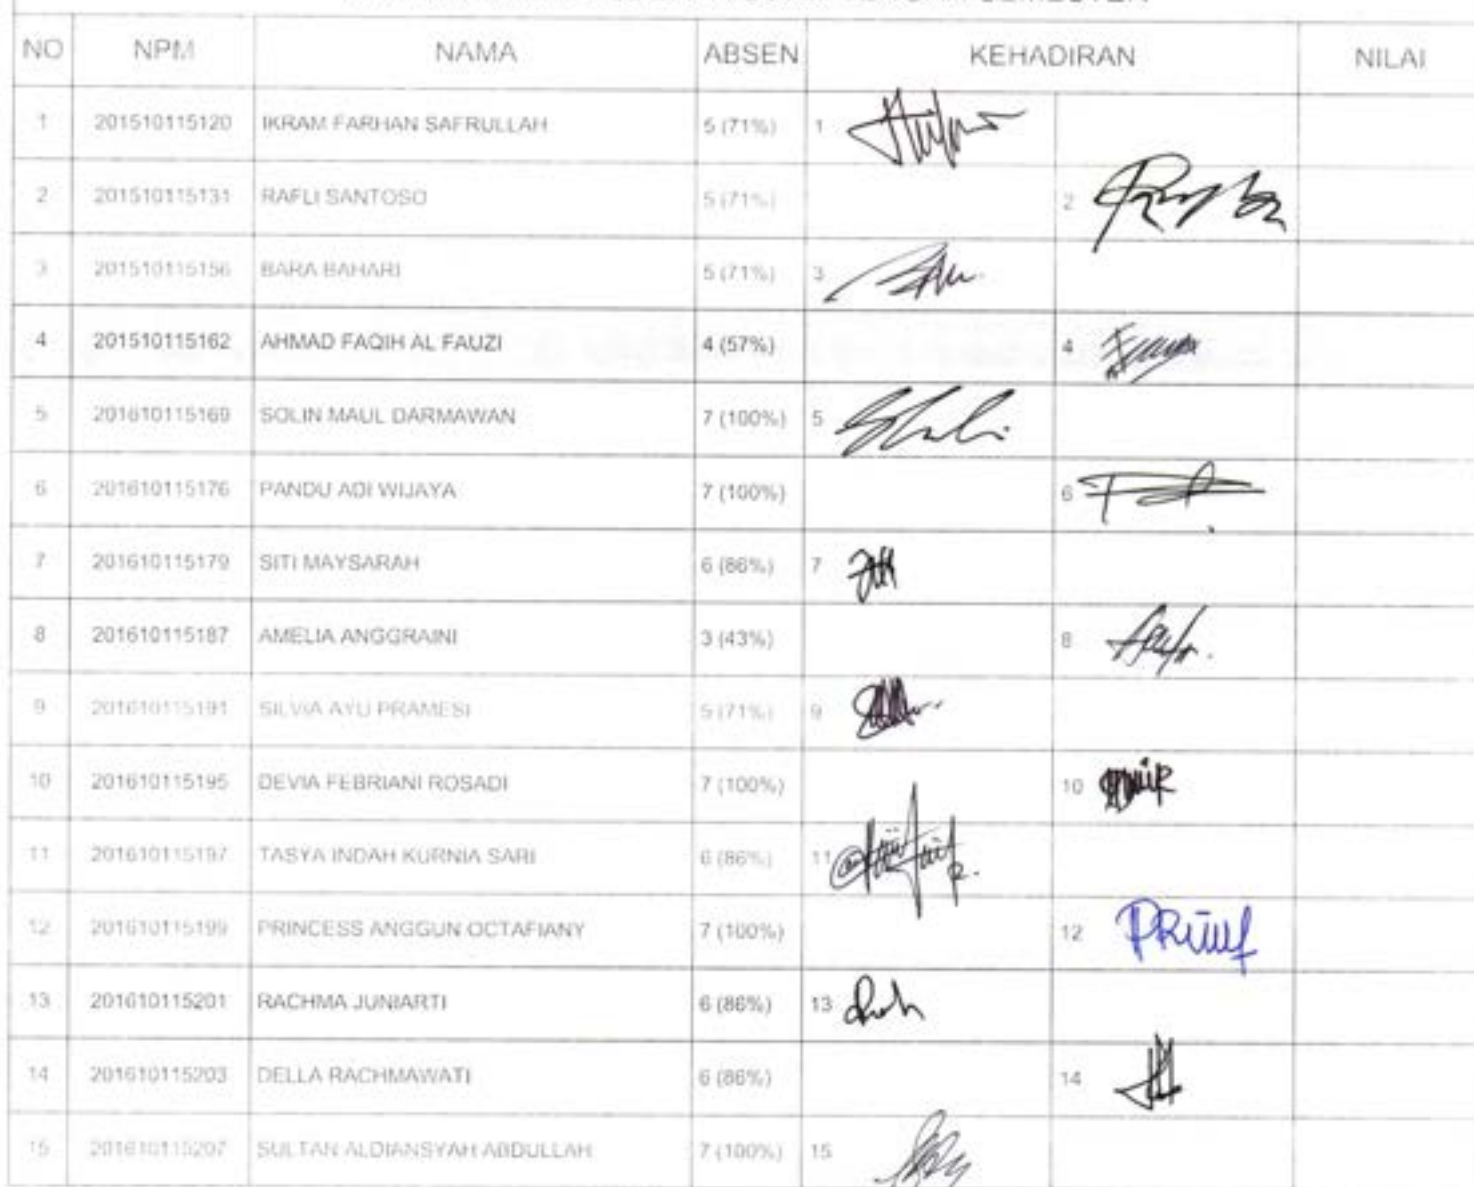 NO NPM NAMA ABSEN KEHADIRAN NILAI
1 201510115120 IKRAM FARHAN SAFRULLAH 5 (71%) 1
2 201510115131 RAFLI SANTOSO 5 (71%) 2
3 201510115156 BARA BAHARI 5 (71%) 3
4 201510115162 AHMAD FAQIH AL FAUZI 4 (57%) 4
5 201610115169 SOLIN MAUL DARMAWAN 7 (100%) 5
6 201610115176 PANDU ADI WIJAYA 7 (100%) 6
7 201610115179 SITI MAYSARAH 6 (86%) 7
8 201610115187 AMELIA ANGGRAINI 3 (43%) 8
9 201610115191 SILVIA AYU PRAMESI 5 (71%) 9
10 201610115195 DEVIA FEBRIANI ROSADI 7 (100%) 10
11 201610115197 TASYA INDAH KURNIA SARI 6 (86%) 11
12 201610115199 PRINCESS ANGGUN OCTAFIANY 7 (100%) 12
13 201610115201 RACHMA JUNIARTI 6 (86%) 13
14 201610115203 DELLA RACHMAWATI 6 (86%) 14
15 201610115207 SULTAN ALDIANSYAH ABDULLAH 7 (100%) 15